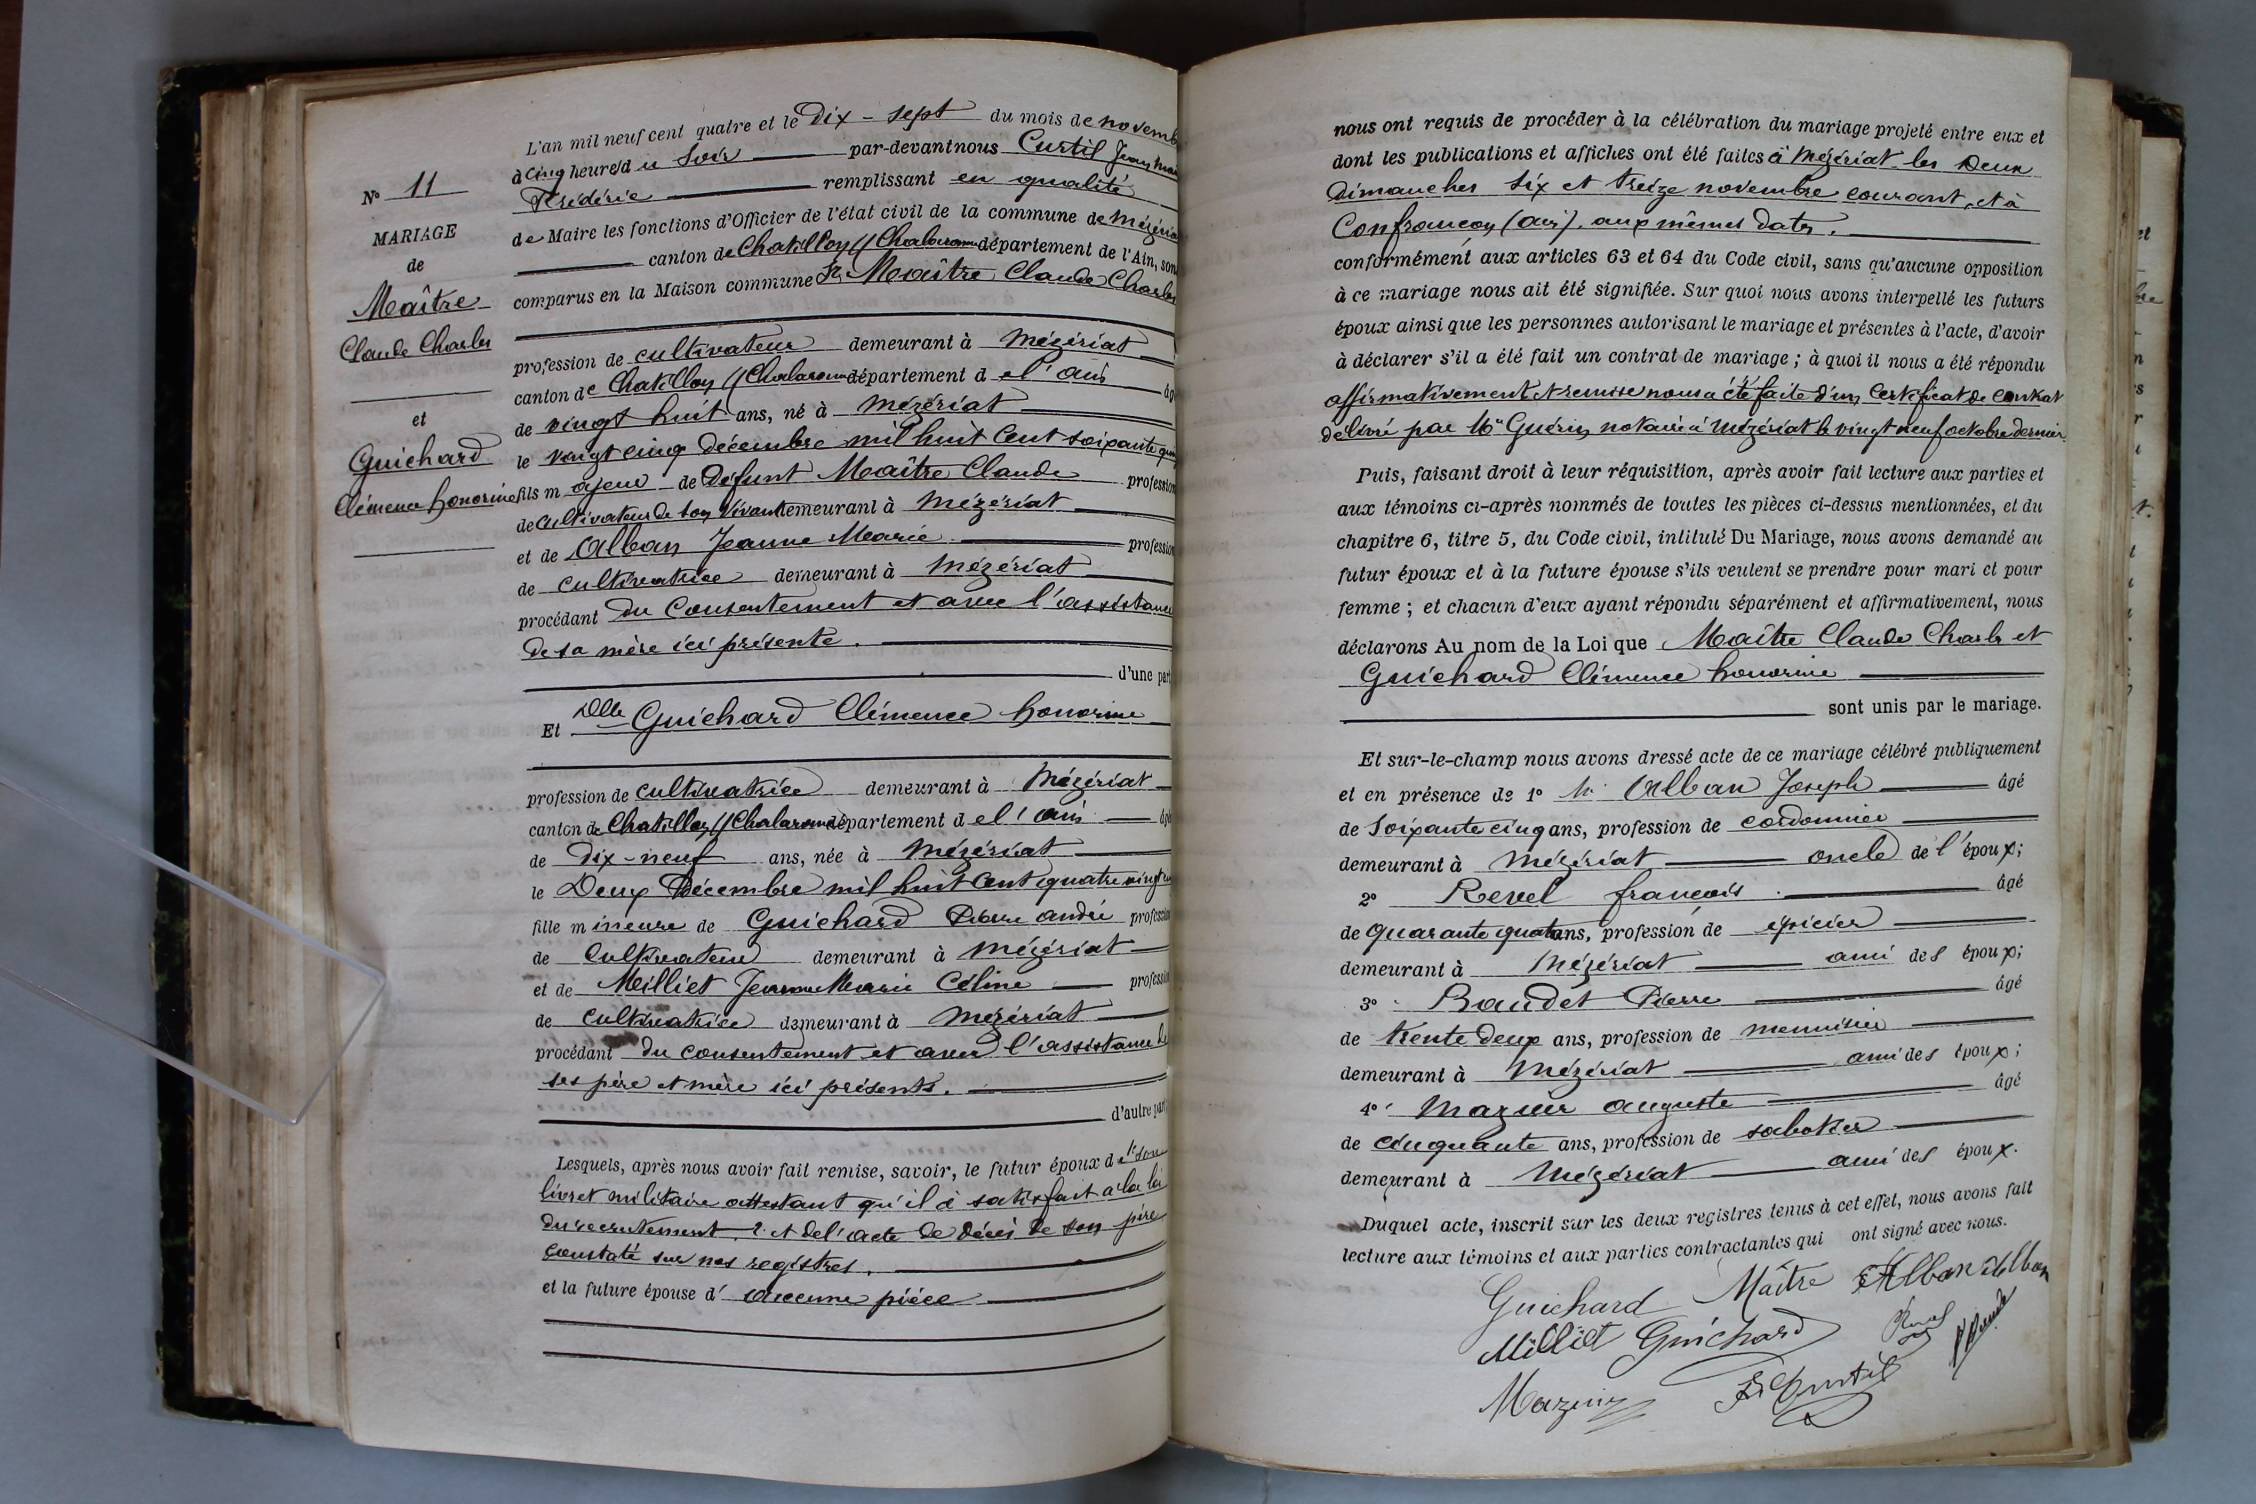 N° 11
MARIAGE
de
Maître
Claude Charles
et
Guichard
Clémence honorine
L'an mil neuf cent quatre et le Dix-sept du mois de novemb
à cinq heures du Soir par-devant nous Curtil Jean
Frédéric remplissant en qualité
de Maire les fonctions d'Officier de l'état civil de la commune de Mézéria
canton de Chatillon s/ Chalaronne département de l'Ain, son
comparus en la Maison commune Sr Maître Claude Charles
profession de cultivateur demeurant à Mézériat
canton de Chatillon s/ Chalaronne département de l'ain âg
de vingt huit ans, né à Mézériat
le vingt cinq décembre mil huit cent soixante
fils majeur de Défunt Maître Claude profession
de cultivateur de son Vivant demeurant à Mézériat
et de Alban Jeanne Marie profession
de cultivatrice demeurant à Mézériat
procédant du consentement et avec l'assistance
de sa mère ici présente.
d'une part
Et Dlle Guichard Clémence honorine
profession de cultivatrice demeurant à Mézériat
canton de Chatillon s/ Chalaronne département de l'ain âgé
de dix-neuf ans, née à Mézériat
le Deux Décembre mil huit cent quatre vingt
fille mineure de Guichard Pierre andré profession
de Cultivateur demeurant à Mézériat
et de Milliet Jeanne Marie Céline profession
de cultivatrice demeurant à Mézériat
procédant du consentement et avec l'assistance de
ses père et mère ici présents.
d'autre part,
Lesquels, après nous avoir fait remise, savoir, le futur époux de 1° son
livret militaire attestant qu'il à satisfait à la loi
du recrutement, 2° et de l'acte de décès de son père
constaté sur nos registres.
et la future épouse d' aucune pièce
nous ont requis de procéder à la célébration du mariage projeté entre eux et
dont les publications et affiches ont été faites à Mézériat les Deux
dimanches six et treize novembre courant, et à
Confrançon (ain), aux mêmes dates.
conformément aux articles 63 et 64 du Code civil, sans qu'aucune opposition
à ce mariage nous ait été signifiée. Sur quoi nous avons interpellé les futurs
époux ainsi que les personnes autorisant le mariage et présentes à l'acte, d'avoir
à déclarer s'il a été fait un contrat de mariage ; à quoi il nous a été répondu
affirmativement et remise nous a été faite d'un certificat de contrat
délivré par Me Guérin notaire à Mézériat le vingt neuf octobre dernier.
Puis, faisant droit à leur réquisition, après avoir fait lecture aux parties et
aux témoins ci-après nommés de toutes les pièces ci-dessus mentionnées, et du
chapitre 6, titre 5, du Code civil, intitulé Du Mariage, nous avons demandé au
futur époux et à la future épouse s'ils veulent se prendre pour mari et pour
femme ; et chacun d'eux ayant répondu séparément et affirmativement, nous
déclarons Au nom de la Loi que Maître Claude Charles et
Guichard Clémence honorine
sont unis par le mariage.
Et sur-le-champ nous avons dressé acte de ce mariage célébré publiquement
et en présence de 1° Mr Alban Joseph âgé
de soixante cinq ans, profession de cordonnier
demeurant à Mézériat oncle de l'époux;
2° Revel françois âgé
de quarante quatre ans, profession de épicier
demeurant à Mézériat ami des époux;
3° Baudet Pierre âgé
de trente deux ans, profession de menuisier
demeurant à Mézériat ami des époux;
4° Mazuir auguste âgé
de cinquante ans, profession de sabotier
demeurant à Mézériat ami des époux.
Duquel acte, inscrit sur les deux registres tenus à cet effet, nous avons fait
lecture aux témoins et aux parties contractantes qui ont signé avec nous.
Guichard Maître Alban Alban
Milliet Guichard Revel
Mazuir Fr Curtil